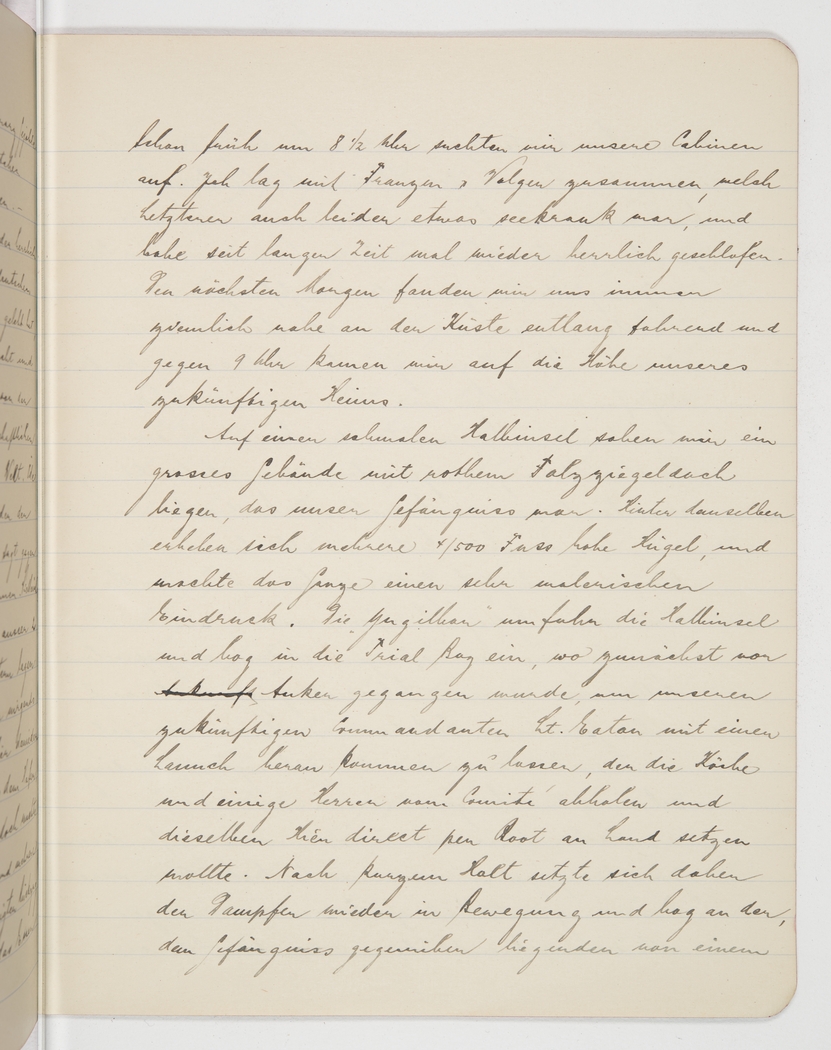 Schon früh um 8 1/2 Uhr suchten wir unsere Cabinen
auf. Ich lag mit Franzen & Volger zusammen, welch
Letzterer auch leider etwas seekrank war, und
habe seit langer Zeit mal wieder herrlich geschlafen.
Den nächsten Morgen fanden wir uns immer
ziemlich nahe an der Küste entlang fahrend und
gegen 9 Uhr kamen wir auf die Höhe unseres
zukünftigen Heims.
Auf einer schmalen Halbinsel sahen wir ein
grosses Gebäude mit rothem Falzziegeldach
liegen, das unser Gefängniss war. Hinter demselben
erheben sich mehrere 4/500 Fuss hohe Hügel, und
machte das Ganze einen sehr malerischen
Eindruck. Die "Yugilbar" umfuhr die Halbinsel
und bog in die Trial Bay ein, wo zunächst vor
Ankunft Anker gegangen wurde, um unseren
zukünftigen Commandanten Lt. Eaton mit einer
Launch heran kommen zu lassen, der die Köche
und einige Herren vom Comité abholen und
dieselben hier direct per Boot an Land setzen
wollte. Nach kurzem Halt setzte sich daher
der Dampfer wieder in Bewegung und bog an der,
dem Gefängniss gegenüber liegenden von einem